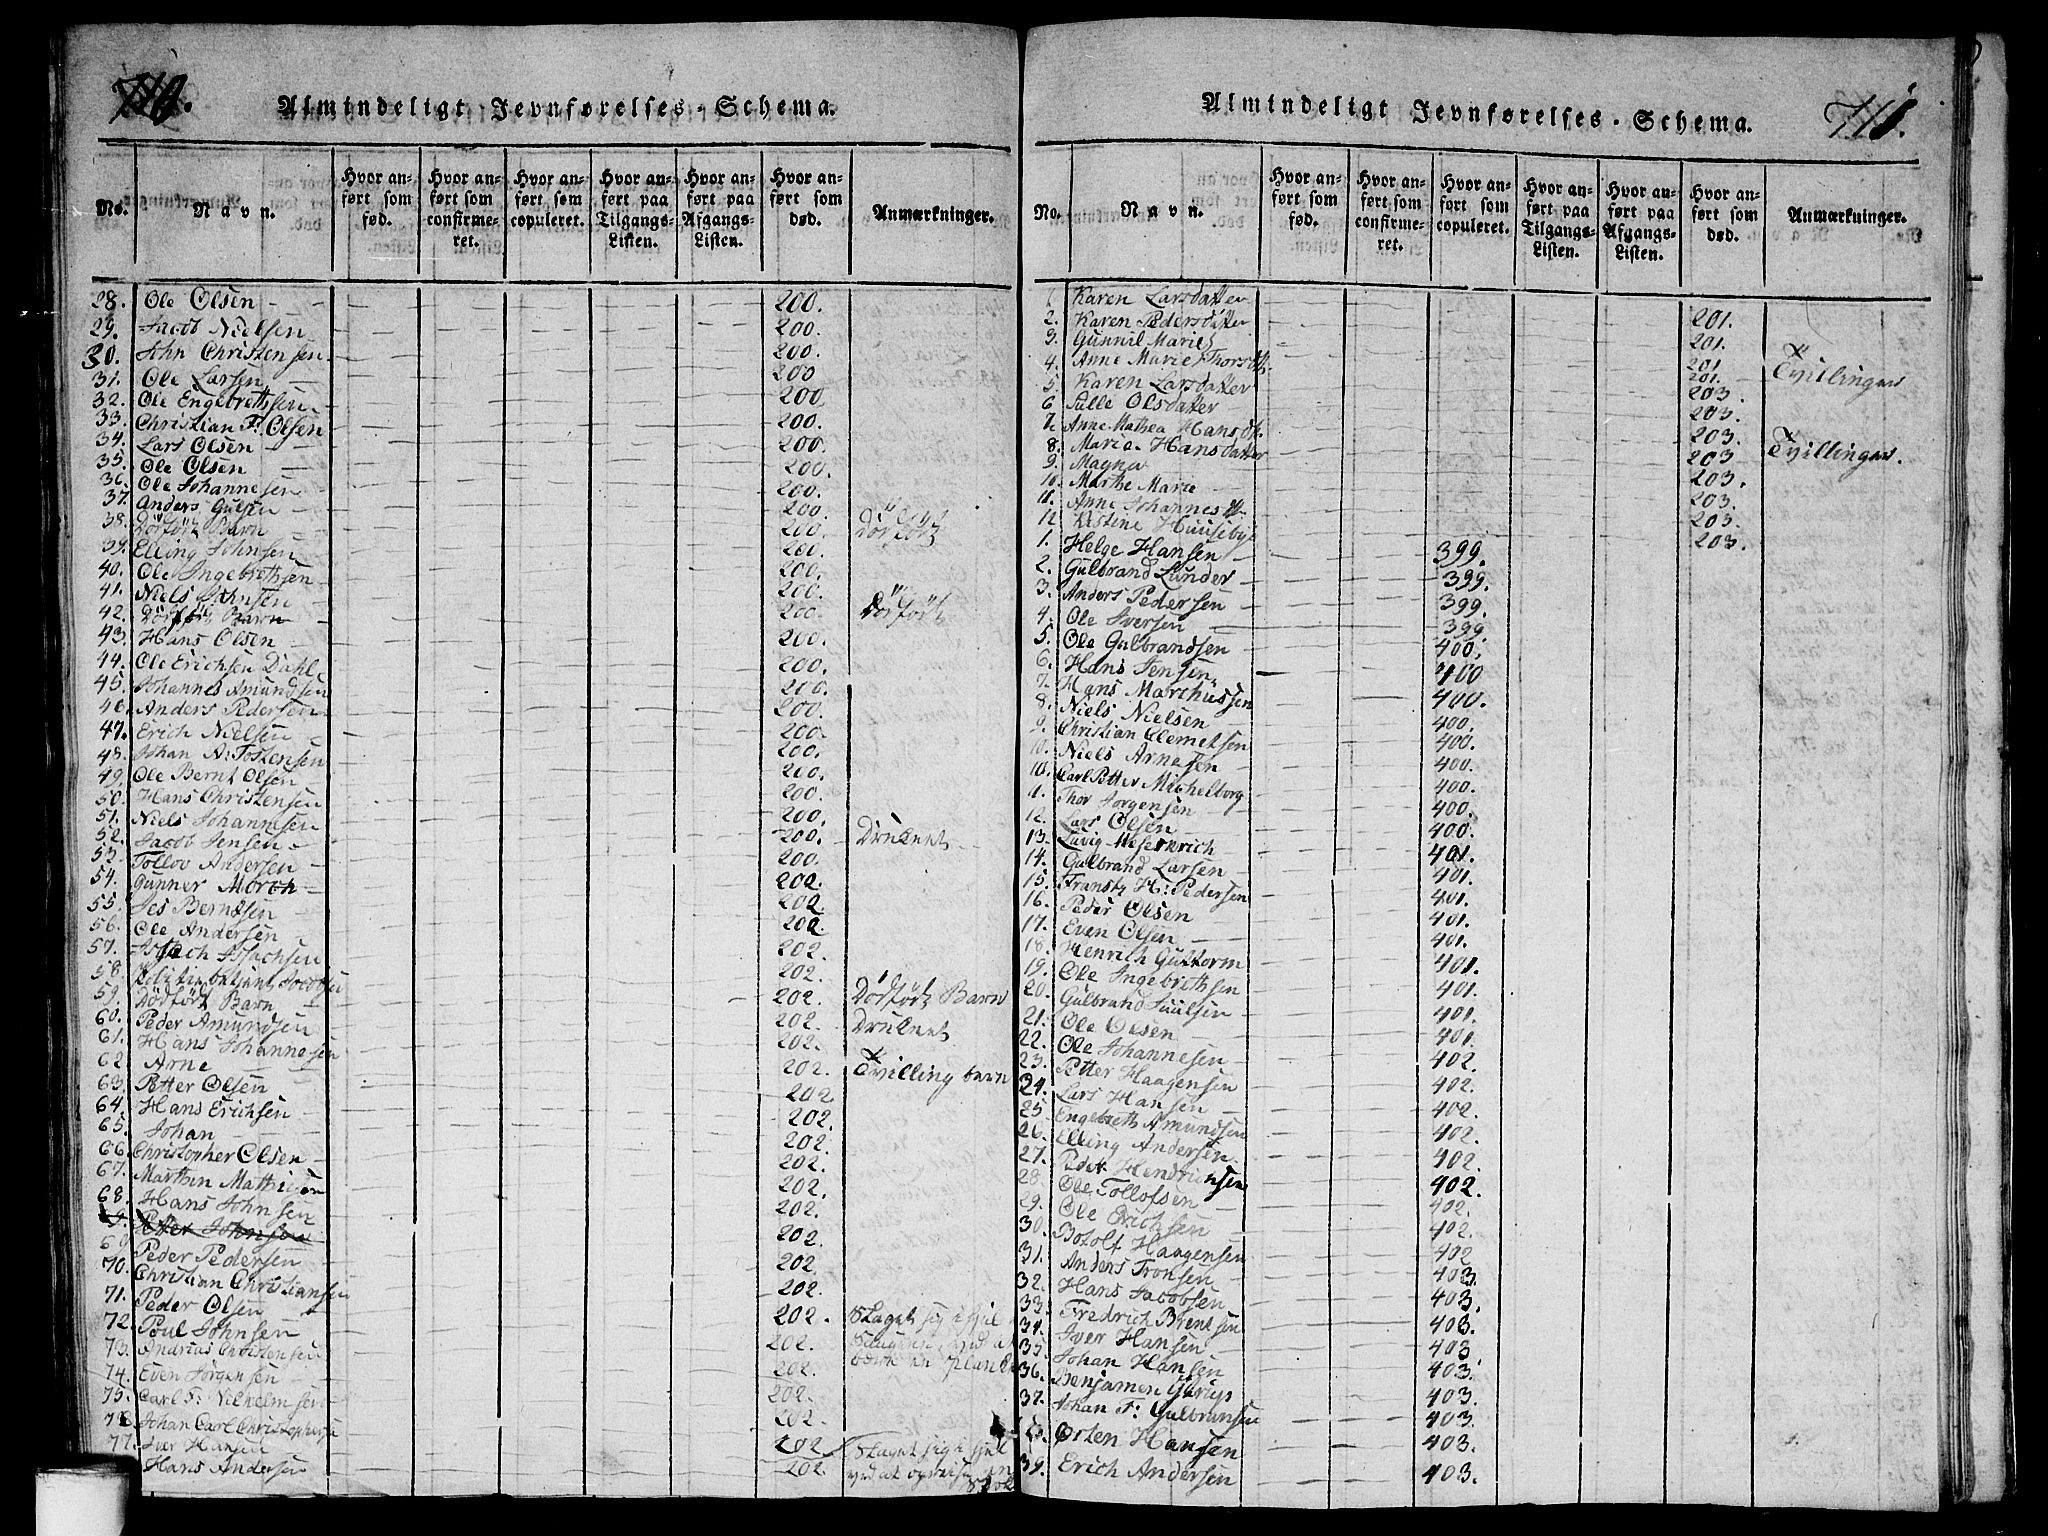 710.
Almindeligt Jevnførelses-Schema.
No.
Navn.
Hvor anført som fød.
Hvor anført som confirmeret.
Hvor anført som copuleret.
Hvor anført paa Tilgangs-Listen.
Hvor anført paa Afgangs-Listen.
Hvor anført som død.
Anmærkninger.
28. Ole Olsen 200.
29. Jacob Nielsen 200.
30. John Christensen 200.
31. Ole Larsen 200
32. Ole Engebrethsen 200
33. Christian F: Olsen 200.
34. Lars Olsen 200.
35. Ole Olsen 200.
36. Ole Johannesen 200.
37. Anders Gulsen 200.
38. Dödföt Barn 200. Dödföt
39. Elling Johnsen 200.
40. Ole Ingebrethsen 200.
41. Niels Johnsen 200.
42. Dödföt Barn 200. Dödföt
43. Hans Olsen 200.
44. Ole Erichsen Dahl 200.
45. Johannes Amundsen 200.
46. Anders Pedersen 200.
47. Erich Nielsen 200.
48. Johan A: Tostensen 200.
49. Ole Bernt Olsen 200.
50. Hans Christensen 200.
51. Niels Johannesen 200.
52. Jacob Jensen 200. Druknet
53. Tollov Andersen 200.
54. Gunner Morch 202.
55. Jes Berndsen 202.
56. Ole Andersen 202.
57. Isach Isachsen 202.
58. 202.
59. Dödföt Barn 202. Dödföt Barn
60. Peder Amundsen 202. Druknet
61. Hans Johannesen 202.
62 Arne 202. Tvilling barn
63. Petter Olsen 202
64. Hans Erichsen 202.
65. Johan 202.
66. Christopher Olsen 202.
67. Marthin Mathisen 202.
68. Hans Johnsen 202.
Peter Johnsen
69. Peder Pedersen 202.
70. Christian Christiansen 202.
71. Peder Olsen 202.
72. Poul Johnsen 202. Slaget sig ihjel
73. Andrias Christensen 202.
74. Even Jørgensen 202.
75. Carl F: Vilhelmsen 202.
76 Johan Carl Christophersen 202.
77. Iver Hansen 202 Slaget sig ihjel
Hans Andersen 202.
711.
Almindeligt Jevnførelses-Schema.
No.
Navn.
Hvor anført som fød.
Hvor anført som confirmeret.
Hvor anført som copuleret.
Hvor anført paa Tilgangs-Listen.
Hvor anført paa Afgangs-Listen.
Hvor anført som død.
Anmærkninger.
1. Karen Larsdatter 201.
2. Karen Pedersdatter 201.
3. Gunnil Marie 201
4. Anne Marie Thorsdt. 201. Tvillinger
5. Karen Larsdatter 203.
6 Sille Olsdatter 203.
7. Anne Mathea Hansdt. 203.
8. Marie Hansdatter 203 Tvillinger.
9. Magna 203.
10. Marthe Marie 203.
11. Anne Johannesdt. 203.
12 Kistene Huuseby 203.
1. Helge Hansen 399.
2. Gulbrand Lunder 399.
3. Anders Pedersen 399.
4. Ole Iversen 399
5. Ole Gulbrandsen 400.
6. Hans Jensen 400
7. Hans Marchussen 400.
8. Niels Nielsen 400.
9. Christian Clemetsen 400.
10. Niels Arnesen 400.
10. Carl Petter Michelborg 400.
11. Thor Jorgensen 400.
12. Lars Olsen 400.
13. Luvig 401.
14. Gulbrand Larsen 401.
15. Frantz H: Pedersen 401.
16. Peder Olsen 401.
17. Even Olsen 401.
18. Henrich Guttorm 401.
19. Ole Ingebrethsen 401.
20. Gulbrand Juulsen 401.
21. Ole Olsen 401.
22. Ole Johannesen 402.
23. Petter Haagensen 402.
24. Lars Hansen 402.
25 Engebreth Amundsen 402.
26. Elling Andersen 402.
27. Peder Hendricksen 402.
28. Ole Tollofsen 402.
29. Ole Erichsen 402.
30. Botolf Haagensen 402
31. Anders Tronsen 403.
32. Hans Jacobsen 403.
33. Fredrich Berntsen 403.
34. Iver Hansen 403
35. Johan Hansen 403.
36. Benjamen 403.
37. Johan F: Gulbransen 403.
Orten Hansen 403.
39. Erich Andersen 403.